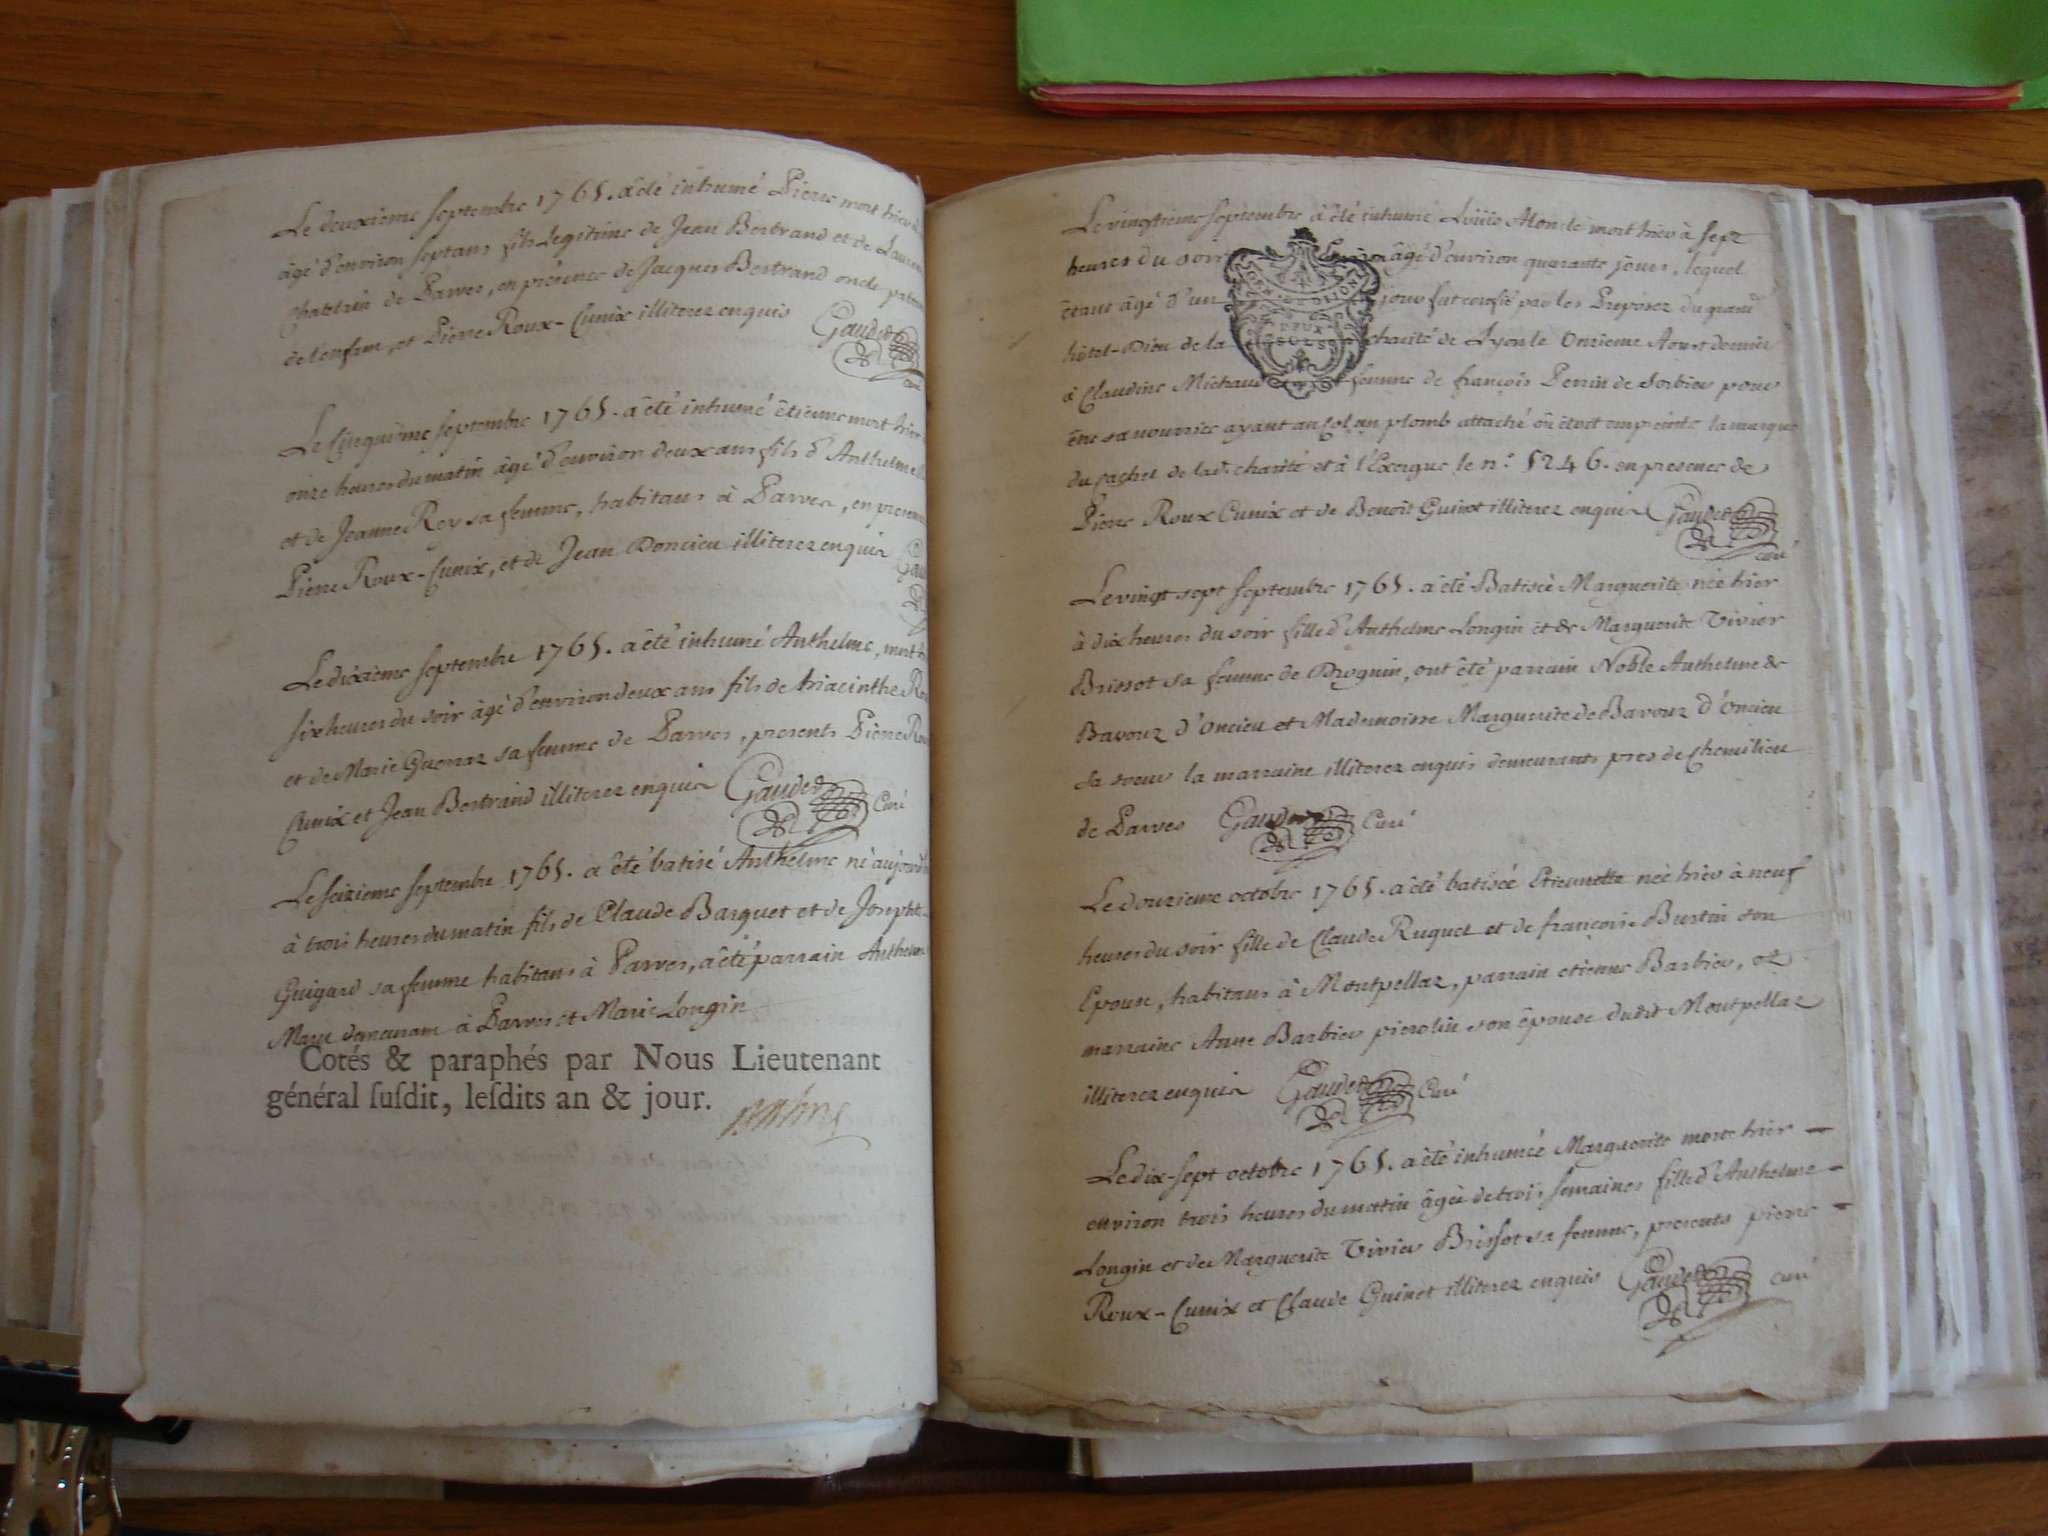 Le deuxieme septembre 1765. a été inhumé Pierre mort hier à
âgé d'environ sept ans fils legitime de Jean Bertrand et de Laurence
Chatelain de Parves, en présence de Jacques Bertrand oncle paternel
de l'enfant, et Pierre Roux-Cunix illiterez enquis Gaudet
curé
Le Cinquième septembre 1765. a été inhumé êtienne mort hier
onze heures du matin âgé d'environ deux ans fils d'Anthelme
et de Jeanne Rey sa femme, habitans à Parves, en presence
Pierre Roux-Cunix, et de Jean Doncieu illiterez enquis
Le dixieme septembre 1765. a été inhumé Anthelme, mort
six heures du soir âgé d'environ deux ans fils de hiacinthe
et de Marie Guerraz sa femme de Parves, presents Pierre Roux
Cunix et Jean Bertrand illiterez enquis Gaudet Curé
Le seizieme septembre 1765. a été batisé Anthelme né aujourd
à trois heures du matin fils de Claude Barquet et de Josephte
Guigard sa femme habitans à Parves, a été parrain Anthelme
à Parves et Marie Longin
Cotés & paraphés par Nous Lieutenant
général susdit, lesdits an & jour.
Le vingtieme septembre à été inhumé Loüis Alonde mort hier à sept
heures du soir âgé d'environ quarante jours, lequel
étant âgé d'un jour fut confié par les Preposez du grand
hôtel-Dieu de la charité de Lyon le Onzieme Aoust dernier
à Claudine Michaud femme de françois Perrin de Sorbier pour
être sa nourrice ayant au Col un plomb attaché où étoit empreinte la marque
du cachet de lad. charité et à l'Exergue le n.° 5246. en presence de
Pierre Roux Cunix et de Benoit Guinet illiterez enquis Gaudet
curé
DEUX
SOLS
Le vingt sept septembre 1765. a été Batisée Marguerite née hier
à dix heures du soir fille d'Anthelme Longin et de Marguerite Vivier
Brissot sa femme de Brognin, ont été parrain Noble Anthelme de
Bavouz d'Oncieu et Mademoisse Marguerite de Bavouz d'Oncieu
sa soeur la marraine illiterez enquis demeurants pres de Chemilieu
de Parves Gaudet Curé
Le douzieme octobre 1765. a été batisée Etiennette née hier à neuf
heures du soir fille de Claude Ruguet et de françoise Burtin son
Epouse, habitans à Montpellaz, parrain etienne Barbier, et
marraine Anne Barbier pierolin son épouse dudit Montpellaz
illiterez enquis Gaudet Curé
Le dix-sept octobre 1765. a été inhumée Marguerite morte hier
environ trois heures du matin âgée de trois semaines fille d'Anthelme
Longin et de Marguerite Vivier Brissot sa femme, presents pierre
Roux-Cunix et Claude Guinet illiterez enquis Gaudet curé